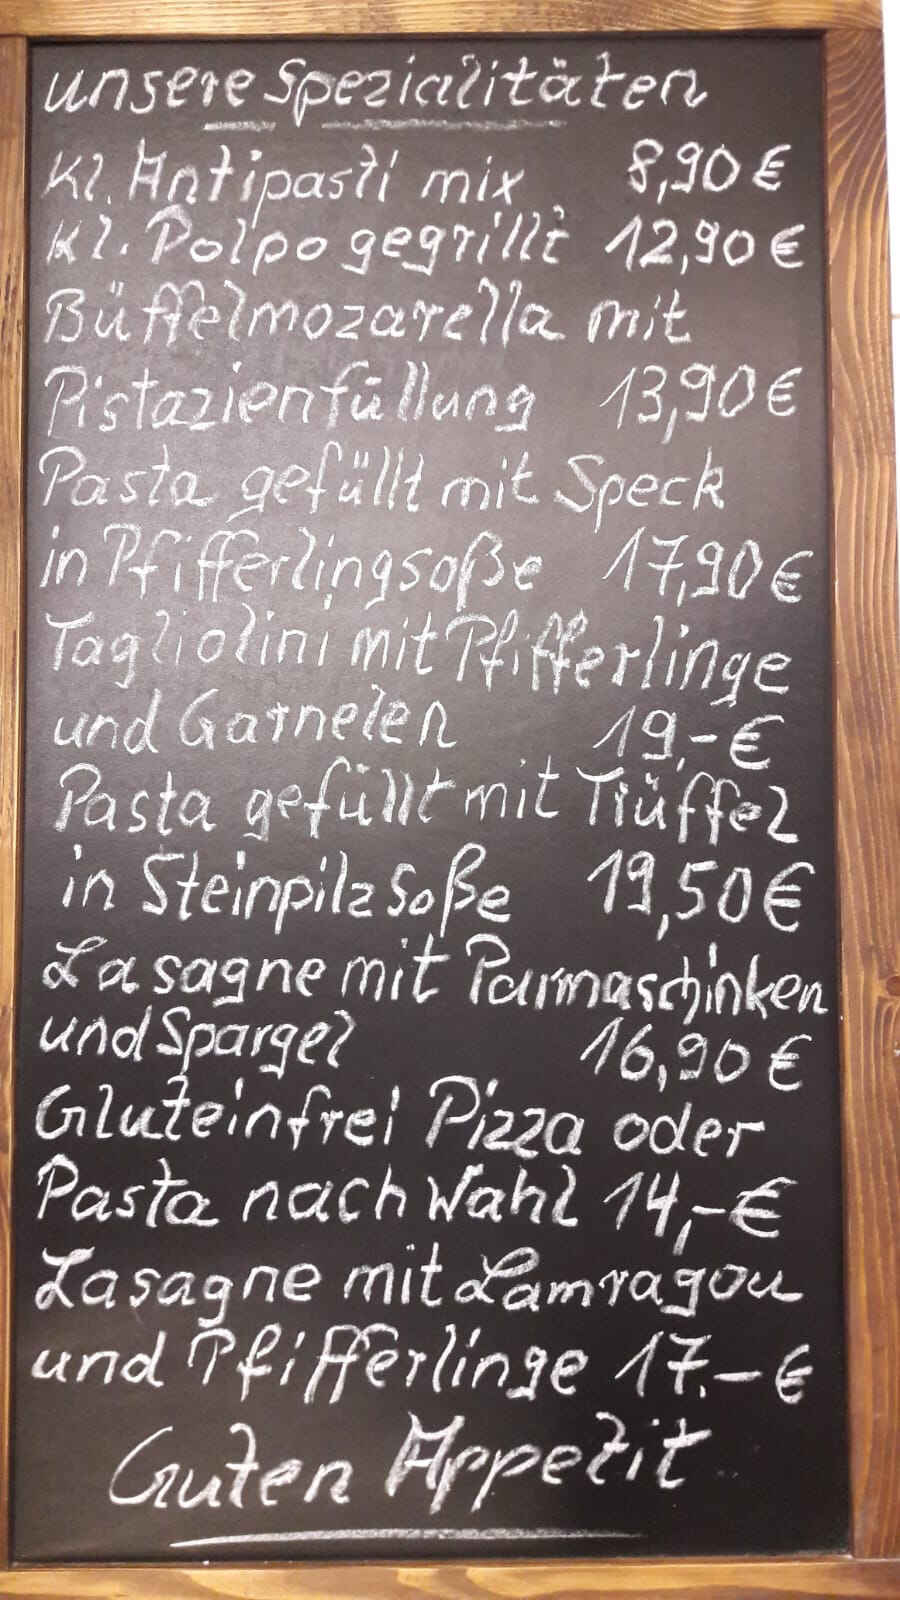 unsere Spezialitäten
Kl. Antipasti mix 8,90 €
Kl. Polpo gegrillt 12,90 €
Büffelmozarella mit
Pistazienfüllung 13,90 €
Pasta gefüllt mit Speck
in Pfifferlingsoße 17,90 €
Tagliolini mit Pfifferlinge
und Garnelen 19,- €
Pasta gefüllt mit Trüffel
in Steinpilzsoße 19,50 €
Lasagne mit Parmaschinken
und Spargel 16,90 €
Gluteinfrei Pizza oder
Pasta nach Wahl 14,- €
Lasagne mit Lamragou
und Pfifferlinge 17.- €
Guten Appetit